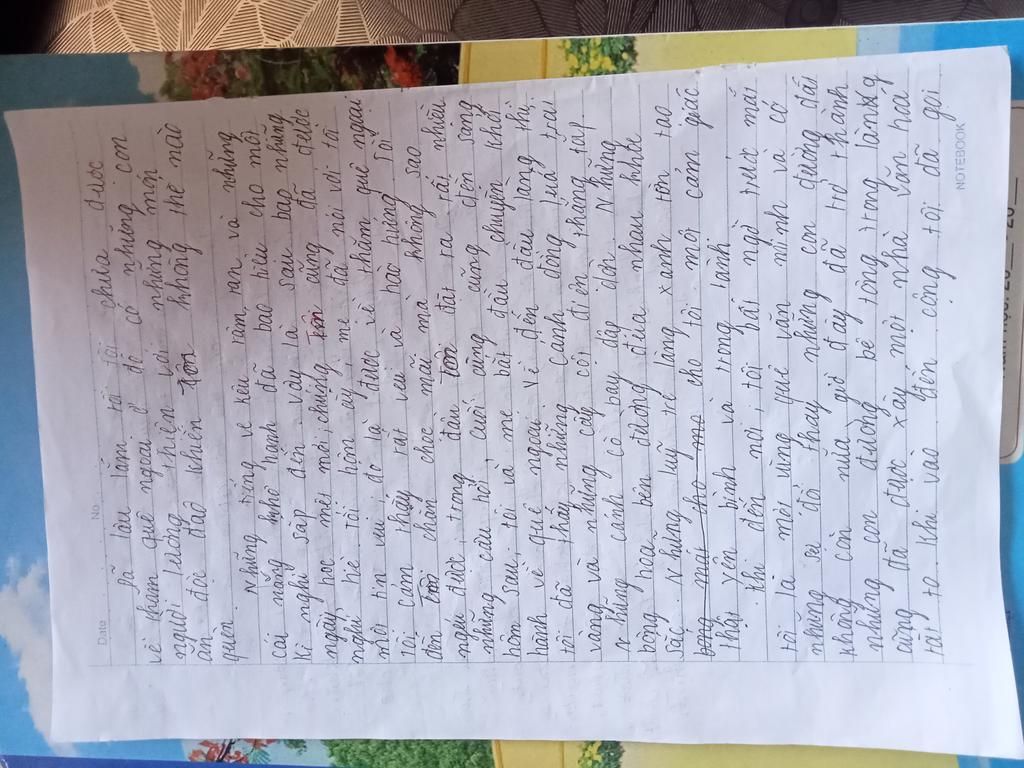 Date No
Đã lâu lắm rồi tôi chưa được
về thăm quê ngoại ở đó có những con
người lương thiện với những món
ăn độc đáo khiến tôi không thể nào
quên.
Những tiếng ve kêu râm ran và những
cái nắng hè hanh đã báo hiệu cho một
kì nghỉ sắp đến vậy là sau bao những
ngày học mệt mỏi, chúng tôi cũng đã được
nghỉ hè tối hôm ấy mẹ đã nói với tôi
một tin vui đó là được về thăm quê ngoại
tôi cảm thấy rất vui và háo hứng rồi
đến tôi chăm chọc mãi mà không sao
ngủ được, trong đầu tôi đặt ra rất nhiều
những câu hỏi, cuối cùng cũng đến sáng
hôm sau, tôi và mẹ bắt đầu chuyến khởi
hành về quê ngoại. Về đến đầu làng thì
tôi đã thấy những cánh đồng lúa trải
vàng và những cây cột điện thẳng tắp.
Những cánh cò bay dập dờn. Những
bông hoa bên đường đua nhau khoe
sắc. Những luỹ tre làng xanh tôn tạo
cho tôi một cảm giác
thật yên bình và trong lành
Khi đến nơi, tôi bất ngờ trước mắt
tôi là một vùng quê văn minh và có
nhưng sự đổi thay những con đường đất
không còn nữa giờ đây đã trở thành
những con đường bê tông trong làng
cũng đã được xây một nhà văn hoá
rất to. Khi vào đến cổng tôi đã gọi
NOTEBOOK